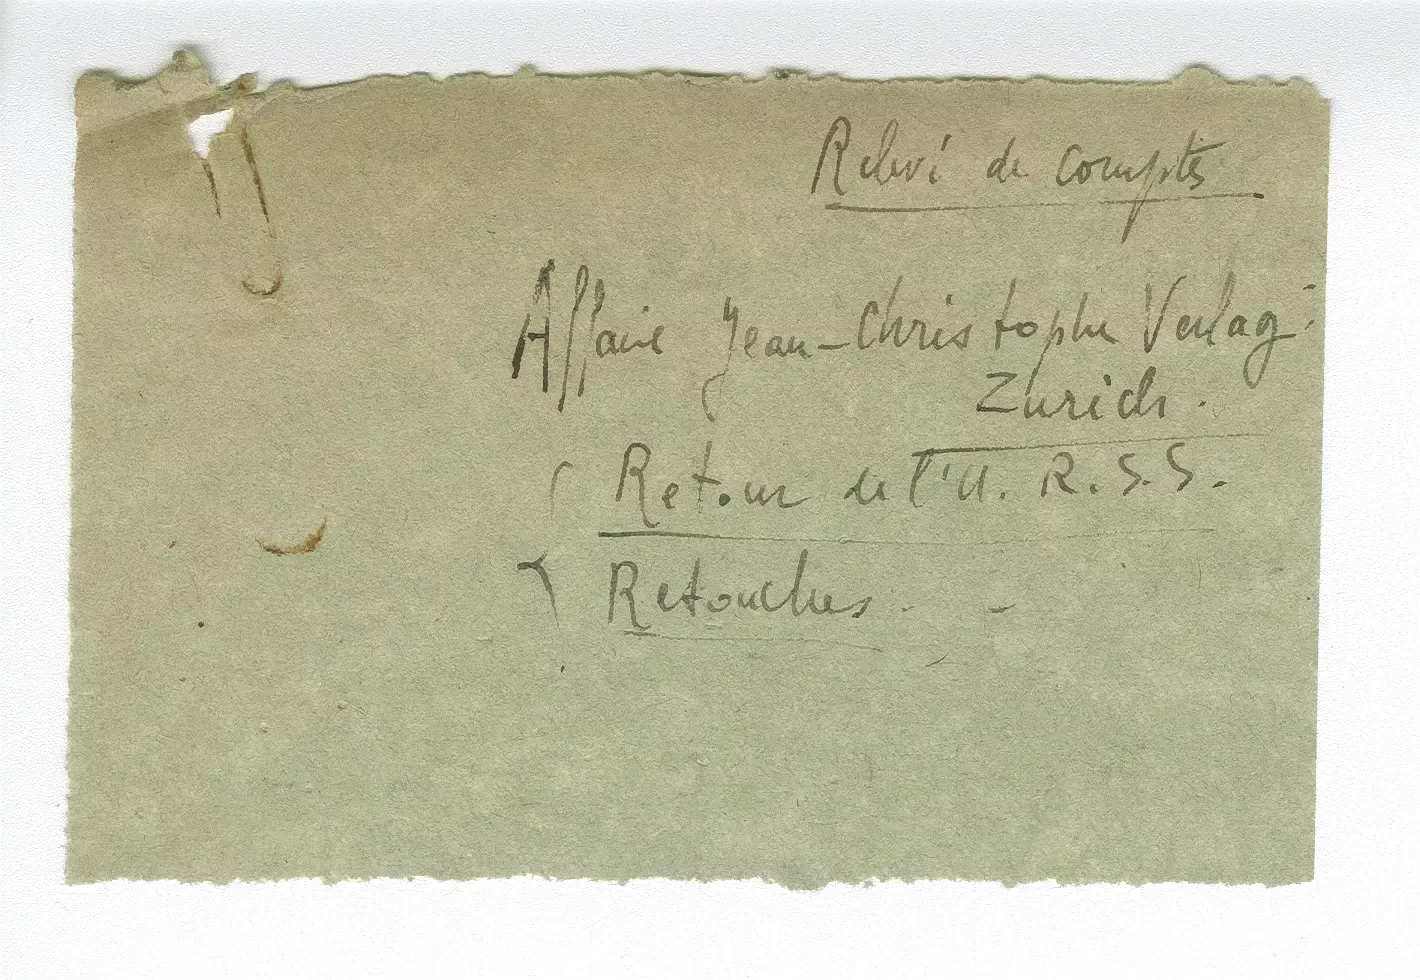 Relevé de comptes
Affaire Jean-Christophe Verlag :
Zurich.
Retour de l'U.R.S.S.
Retouches. -